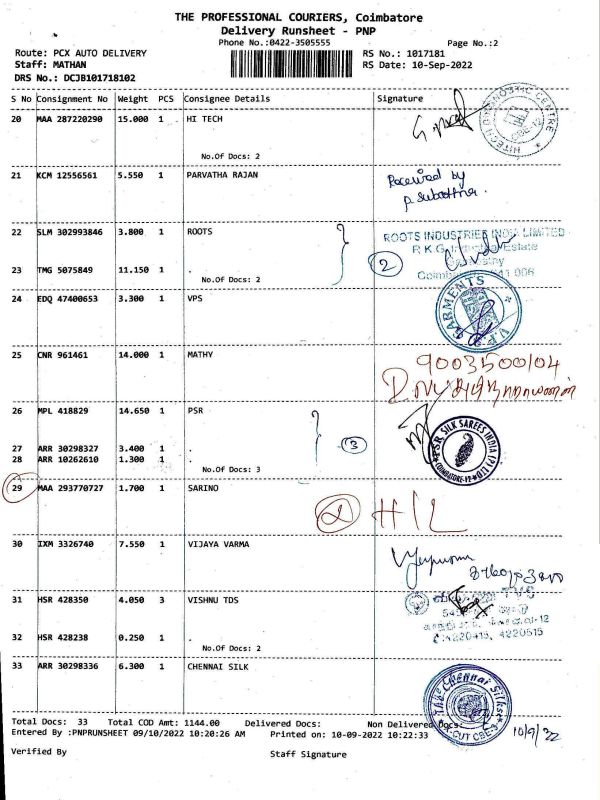 THE PROFESSIONAL COURIERS, Coimbatore
Delivery Runsheet - PNP
Phone No.:0422-3505555
Page No.:2
Route: PCX AUTO DELIVERY
RS No.: 1017181
Staff: MATHAN
RS Date: 10-Sep-2022
DRS No.: DCJB101718102
S No Consignment No Weight PCS Consignee Details Signature
20 MAA 287220290 15.000 1 HI TECH
No.Of Docs: 2
21 KCM 12556561 5.550 1 PARVATHA RAJAN
Received by
22 SLM 302993846 3.800 1 ROOTS
ROOTS INDUSTRIES INDIA LIMITED
2
23 TMG 5075849 11.150 1 .
No.Of Docs: 2
24 EDQ 47400653 3.300 1 VPS
GARMENTS
25 CNR 961461 14.000 1 MATHY
9003500104
26 MPL 418829 14.650 1 PSR
PSR SILK SAREES INDIA (P) LTD
COIMBATORE-12
27 ARR 30298327 3.400 1 .
3
28 ARR 10262610 1.300 1 .
No.Of Docs: 3
29 MAA 293770727 1.700 1 SARINO
H/L
30 IXM 3326740 7.550 1 VIJAYA VARMA
31 HSR 428350 4.050 3 VISHNU TDS
TVS
4220415, 4220515
32 HSR 428238 0.250 1 .
No.Of Docs: 2
33 ARR 30298336 6.300 1 CHENNAI SILK
The Chennai Silks
Total Docs: 33 Total COD Amt: 1144.00 Delivered Docs: Non Delivered Docs:
10/9/22
Entered By :PNPRUNSHEET 09/10/2022 10:20:26 AM Printed on: 10-09-2022 10:22:33
Verified By
Staff Signature